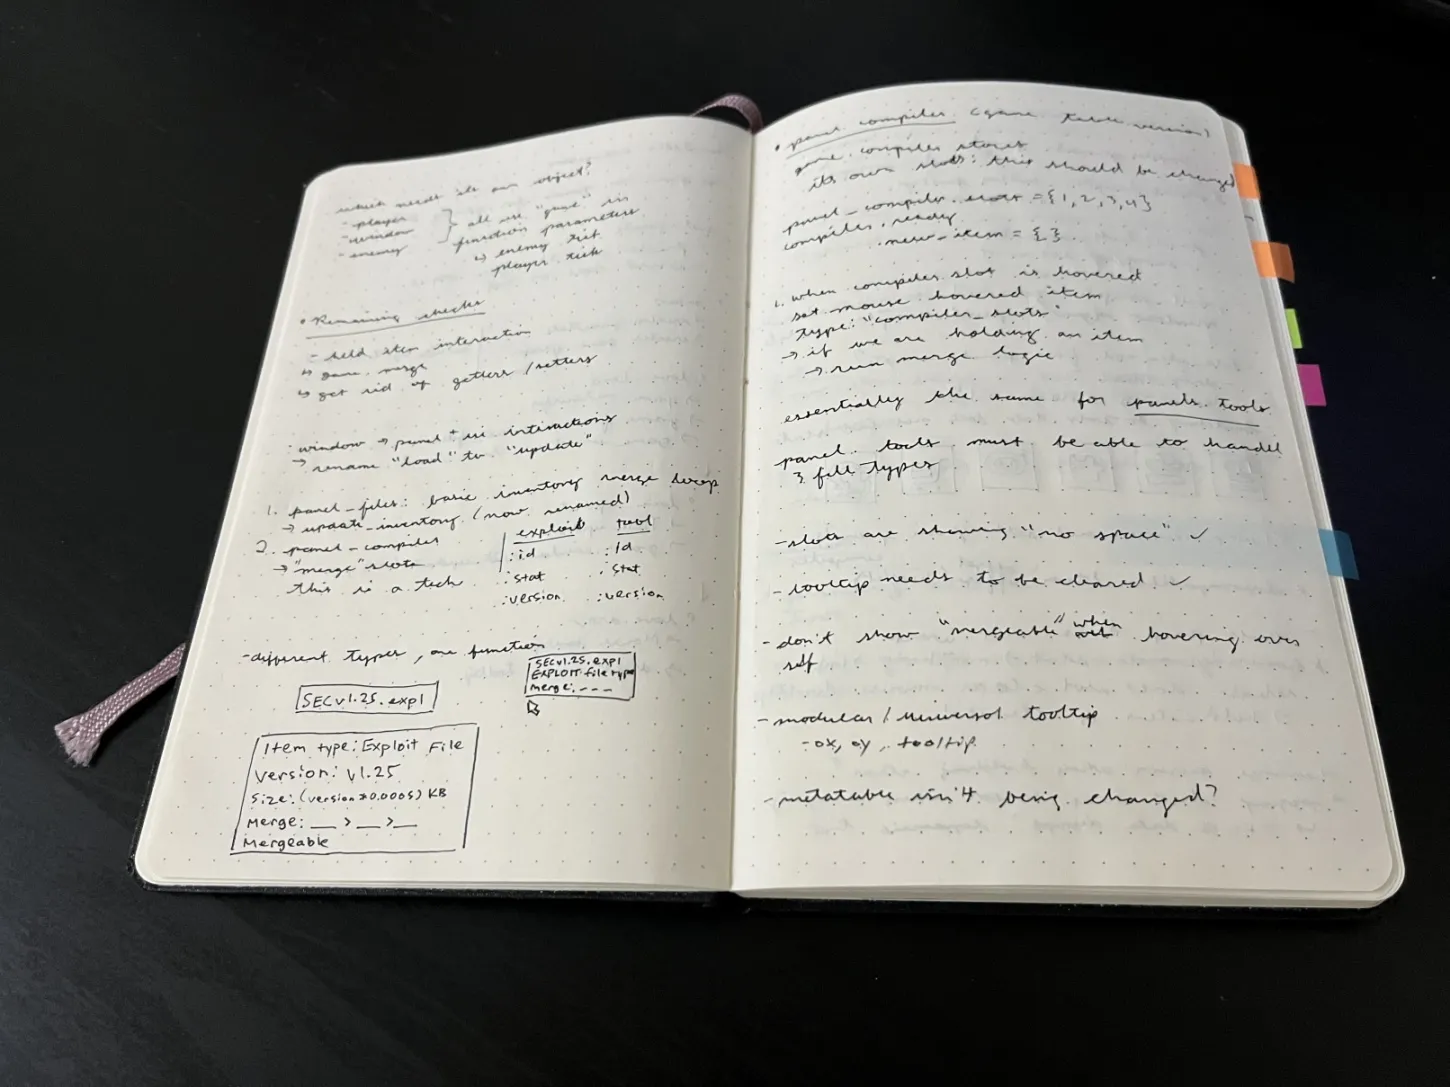 which needs its own object?
- player
- window
- enemy
} all use "game" in
function parameters
↳ enemy tick
player tick
• Remaining checks
- held item interaction
↳ game merge
↳ get rid of getters / setters
- window → panel + ui intiractions
→ rename "load" to "update"
1. panel_files: basic inventory merge
→ update_inventory (now renamed)
2. panel-compiler
→ "merge" slots
this is a tech
exploit tool
:id :id
:stat :stat
:version :version
- different types, are function
SECv1.25.expl
SECv1.25.expl
EXPLOIT file type
merge: - - -
Item type: Exploit File
Version: v1.25
Size: (version*0.0005) KB
Merge: __ > __ > __
Mergeable
• panel compiler (game table version)
game.compiler stores
its own slots: this should be changed
panel_compiler.slots = {1,2,3,4}
compiler.ready
.new_item = {}
1. when compiler slot is hovered
set mouse hovered item
type: "compiler_slots"
→ if we are holding an item
→ run merge logic
essentially the same for panels tools
panel tools must be able to handel
3 fell types
- slots are showing "no space" ✓
- tooltip needs to be cleared ✓
- don't show "mergeable" when hovering over
self
- modular / universol tooltip
- ox, oy, tooltip
- metatable isn't being changed?